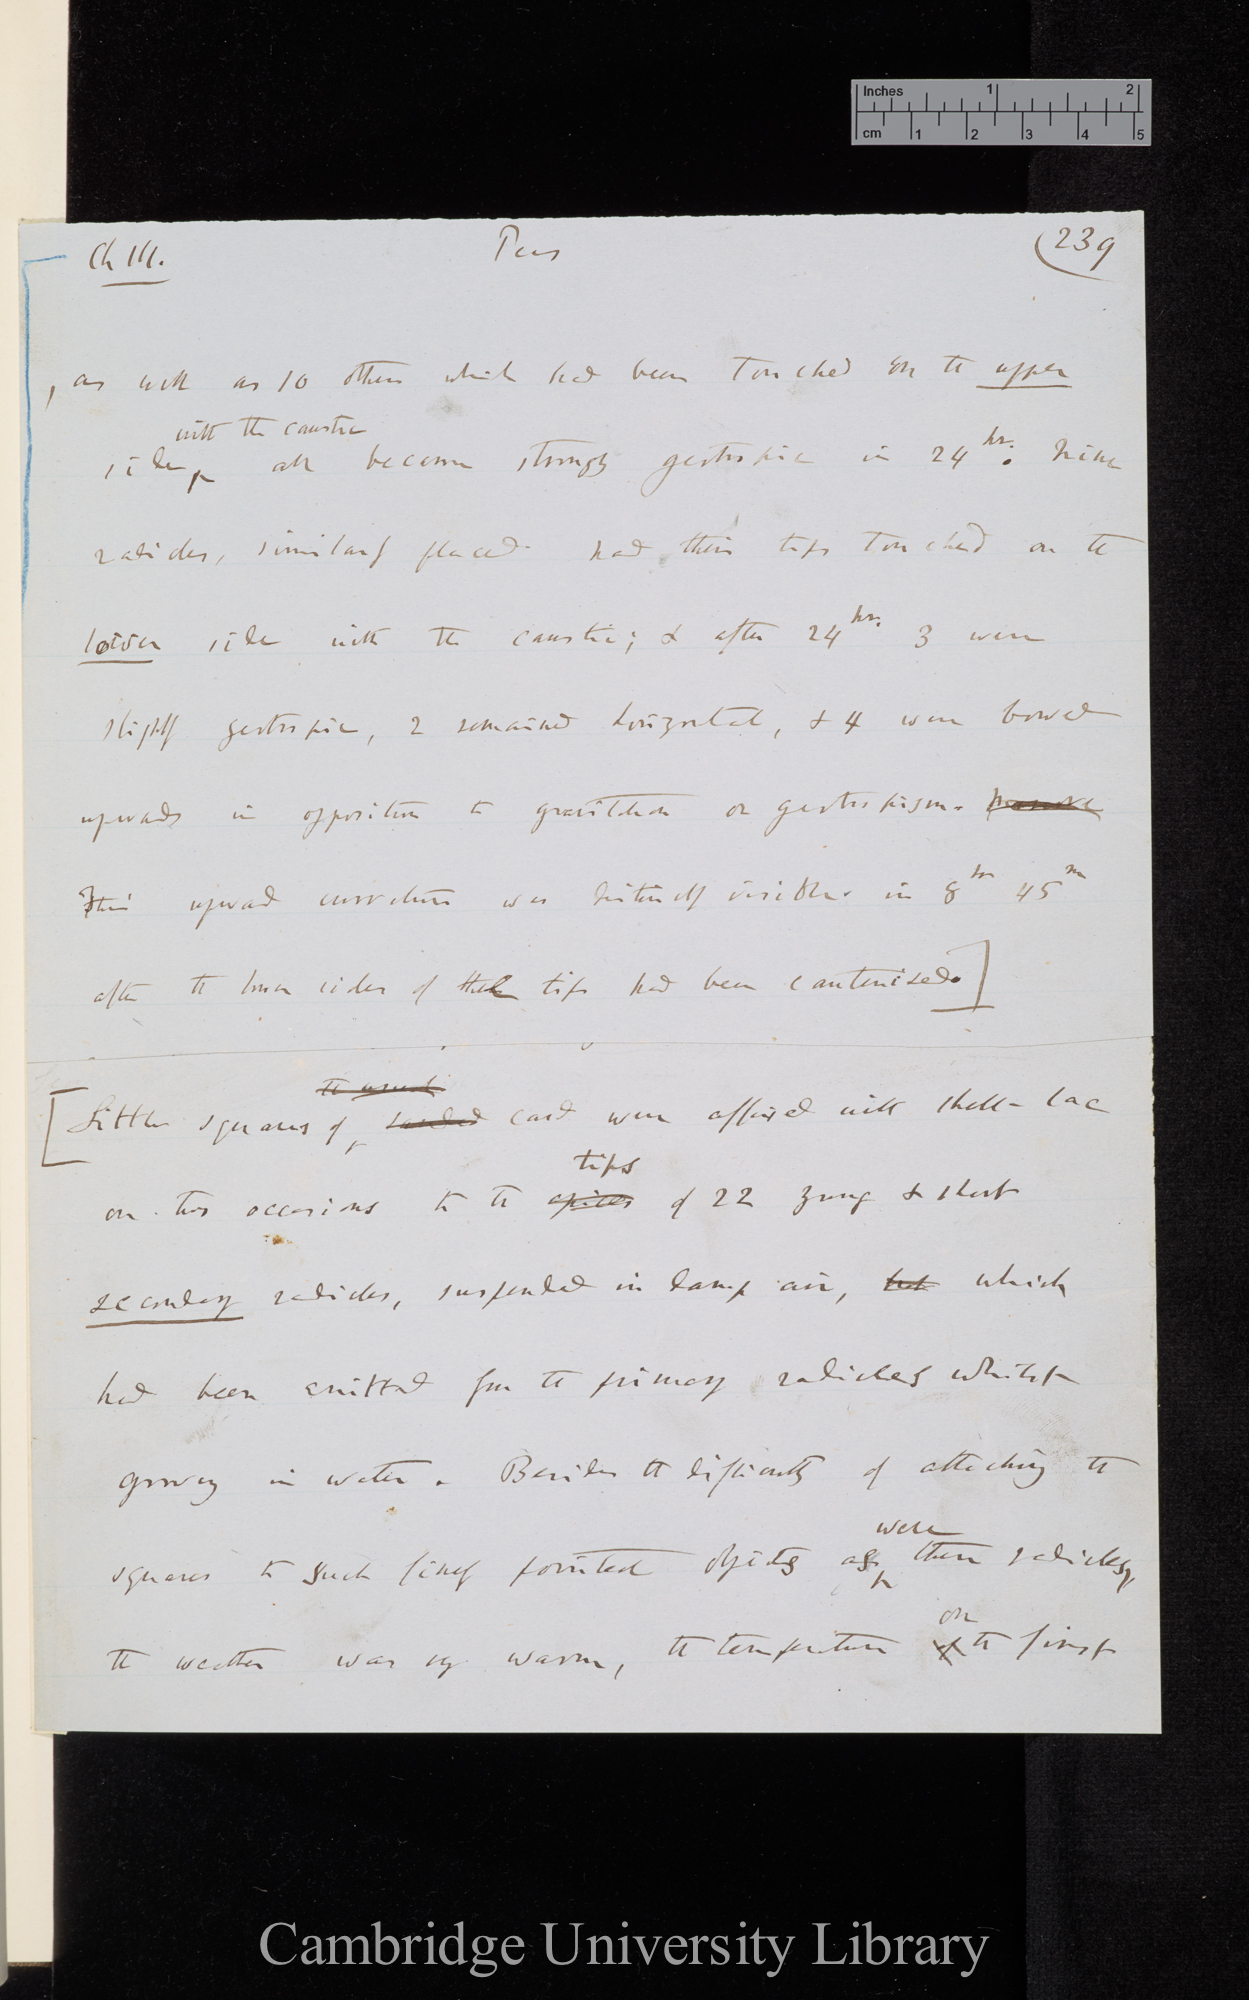 Inches 1 2
cm 1 2 3 4 5
Ch III. Peas (239
, as well as 10 others which had been touched on the upper
with the caustic
side, all became strongly geotropic in 24 hr. Nine
radicles, similarly placed had their tips touched on the
lower side with the caustic; & after 24 hr. 3 were
slightly geotropic, 2 remained horizontal, & 4 were bowed
upwards in opposition to gravitation or geotropism.
This upward curvature was distinctly visible in 8 h 45 m
after the lower sides of the tips had been cauterised.]
the usual
[Little squares of sanded card were affixed with shell-lac
tips
on two occasions to the apices of 22 young & short
secondary radicles, suspended in damp air, but which
had been emitted from the primary radicles whilst
growing in water. Besides the difficulty of attaching the
were
squares to such finely pointed objects as these radicles,
on
the weather was very warm, the temperature of the first
Cambridge University Library